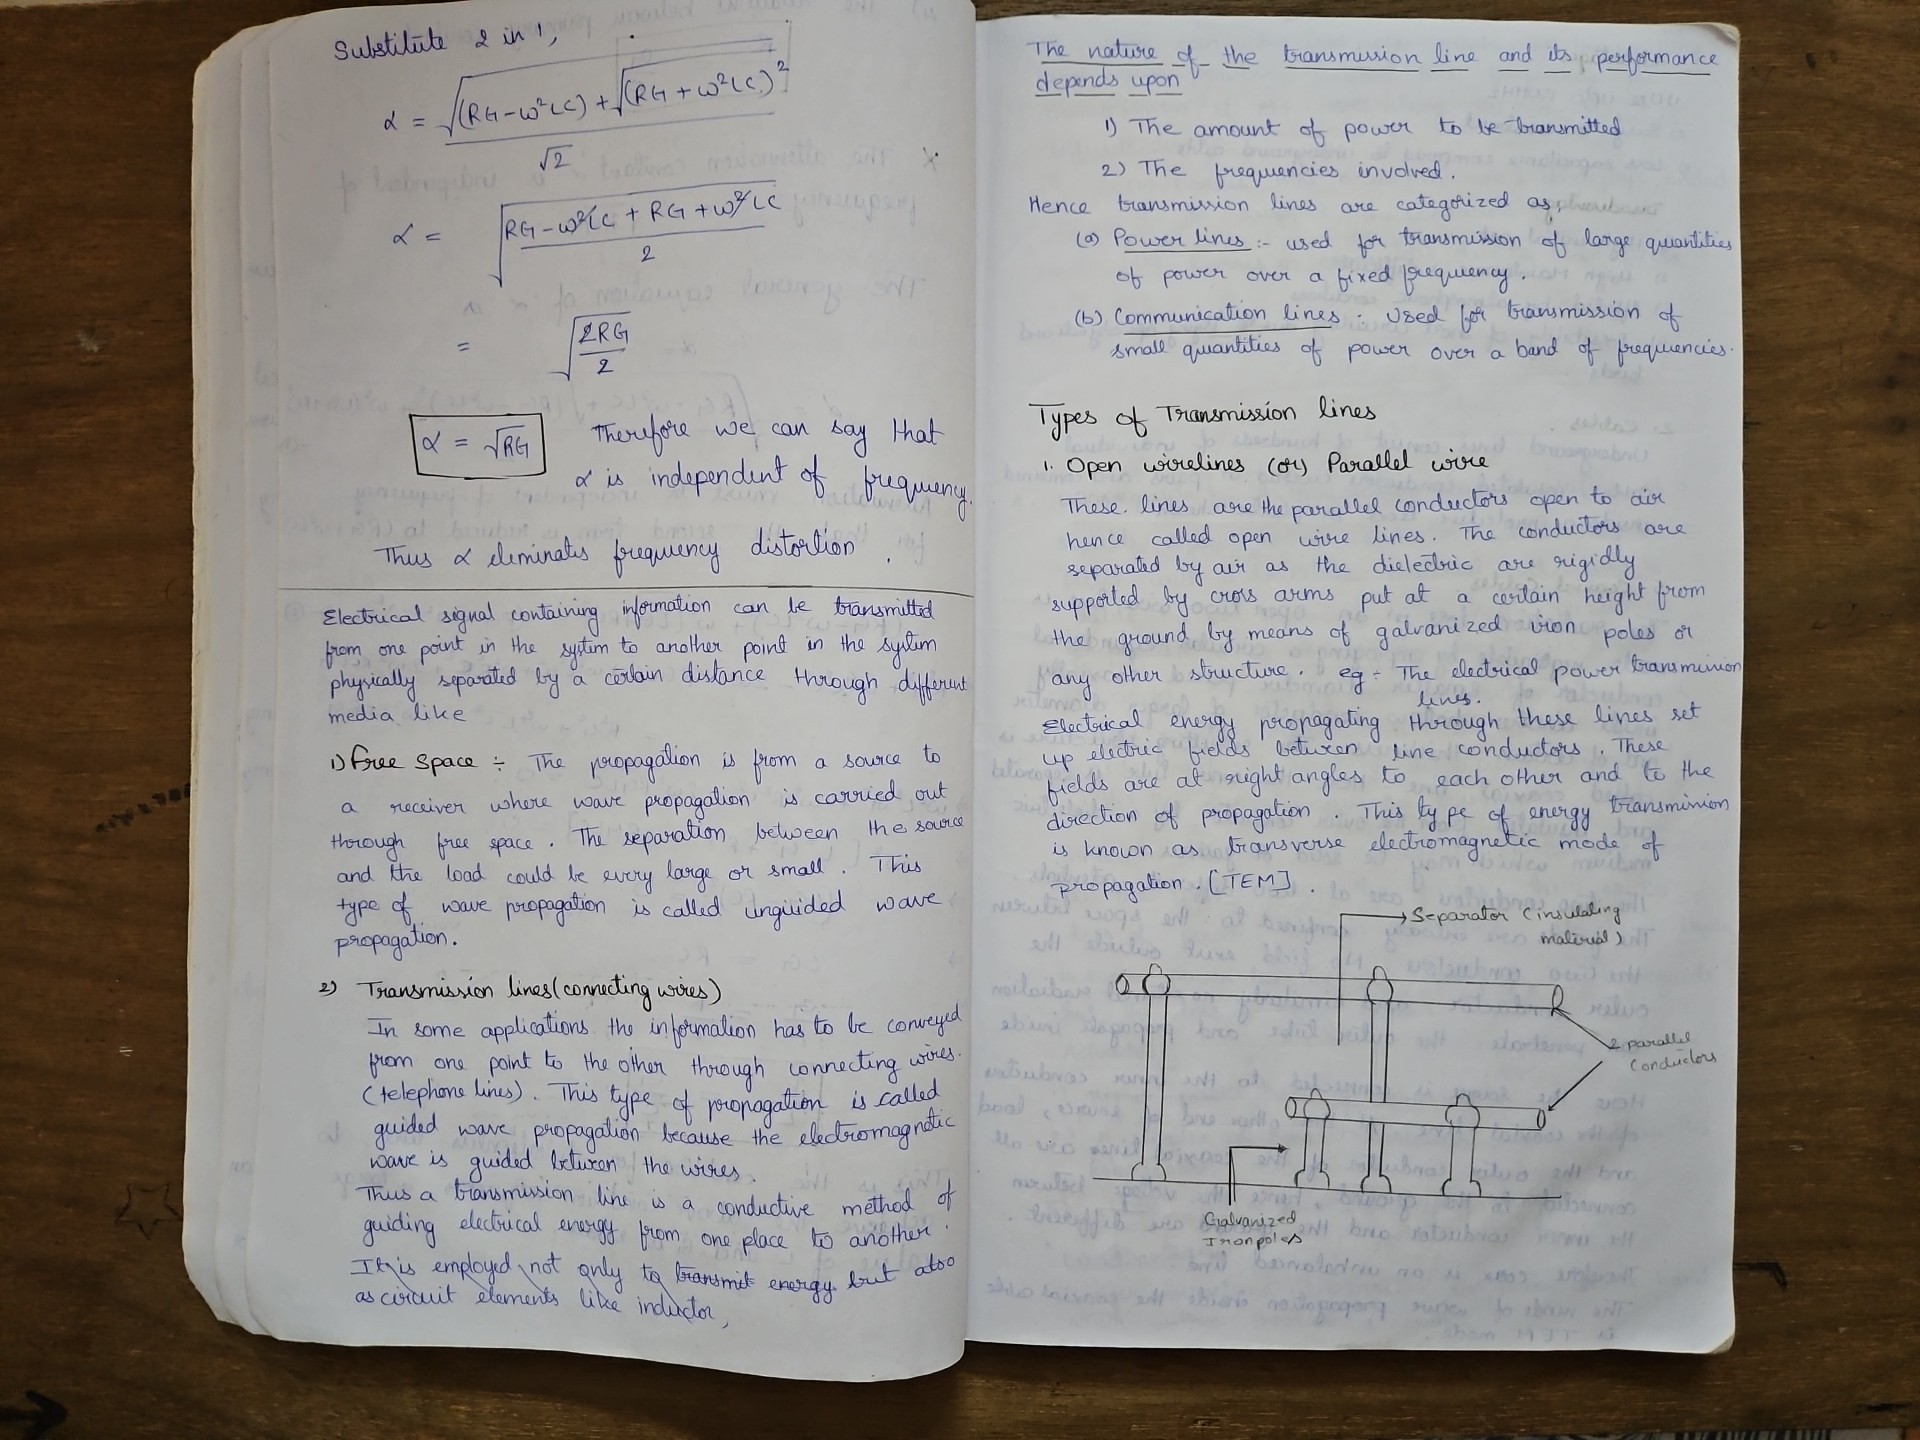 Substitute 2 in 1,
α = √((RG-ω²LC) + √(RG+ω²LC)²) / √2
α = √((RG-ω²LC + RG + ω²LC) / 2)
= √(2RG / 2)
α = √RG Therefore we can say that
α is independent of frequency.
Thus α eleminates frequency distortion.
Electrical signal containing information can be transmitted
from one point in the system to another point in the system
physically separated by a certain distance through different
media like
1) Free Space ÷ The propagation is from a source to
a receiver where wave propagation is carried out
through free space. The separation between the source
and the load could be every large or small. This
type of wave propagation is called unguided wave
propagation.
2) Transmission lines (connecting wires)
In some applications the information has to be conveyed
from one point to the other through connecting wires.
(telephone lines). This type of propagation is called
guided wave propagation because the electromagnetic
wave is guided between the wires.
Thus a transmission line is a conductive method of
guiding electrical energy from one place to another.
It is employed not only to transmit energy but also
as circuit elements like inductor,
The nature of the transmission line and its performance
depends upon
1) The amount of power to be transmitted
2) The frequencies involved.
Hence transmission lines are categorized as,
(a) Power lines :- used for transmission of large quantities
of power over a fixed frequency.
(b) Communication lines : Used for transmission of
small quantities of power over a band of frequencies.
Types of Transmission lines
1. Open wirelines (or) Parallel wire
These lines are the parallel conductors open to air
hence called open wire lines. The conductors are
separated by air as the dielectric are rigidly
supported by cross arms put at a certain height from
the ground by means of galvanized iron poles or
any other structure. eg ÷ The electrical power transmission
lines.
Electrical energy propagating through these lines set
up electric fields between line conductors. These
fields are at right angles to each other and to the
direction of propagation. This type of energy transmission
is known as transverse electromagnetic mode of
propagation. [TEM].
Separator (insulating
material)
2 parallel
Conductors
Galvanized
Iron poles